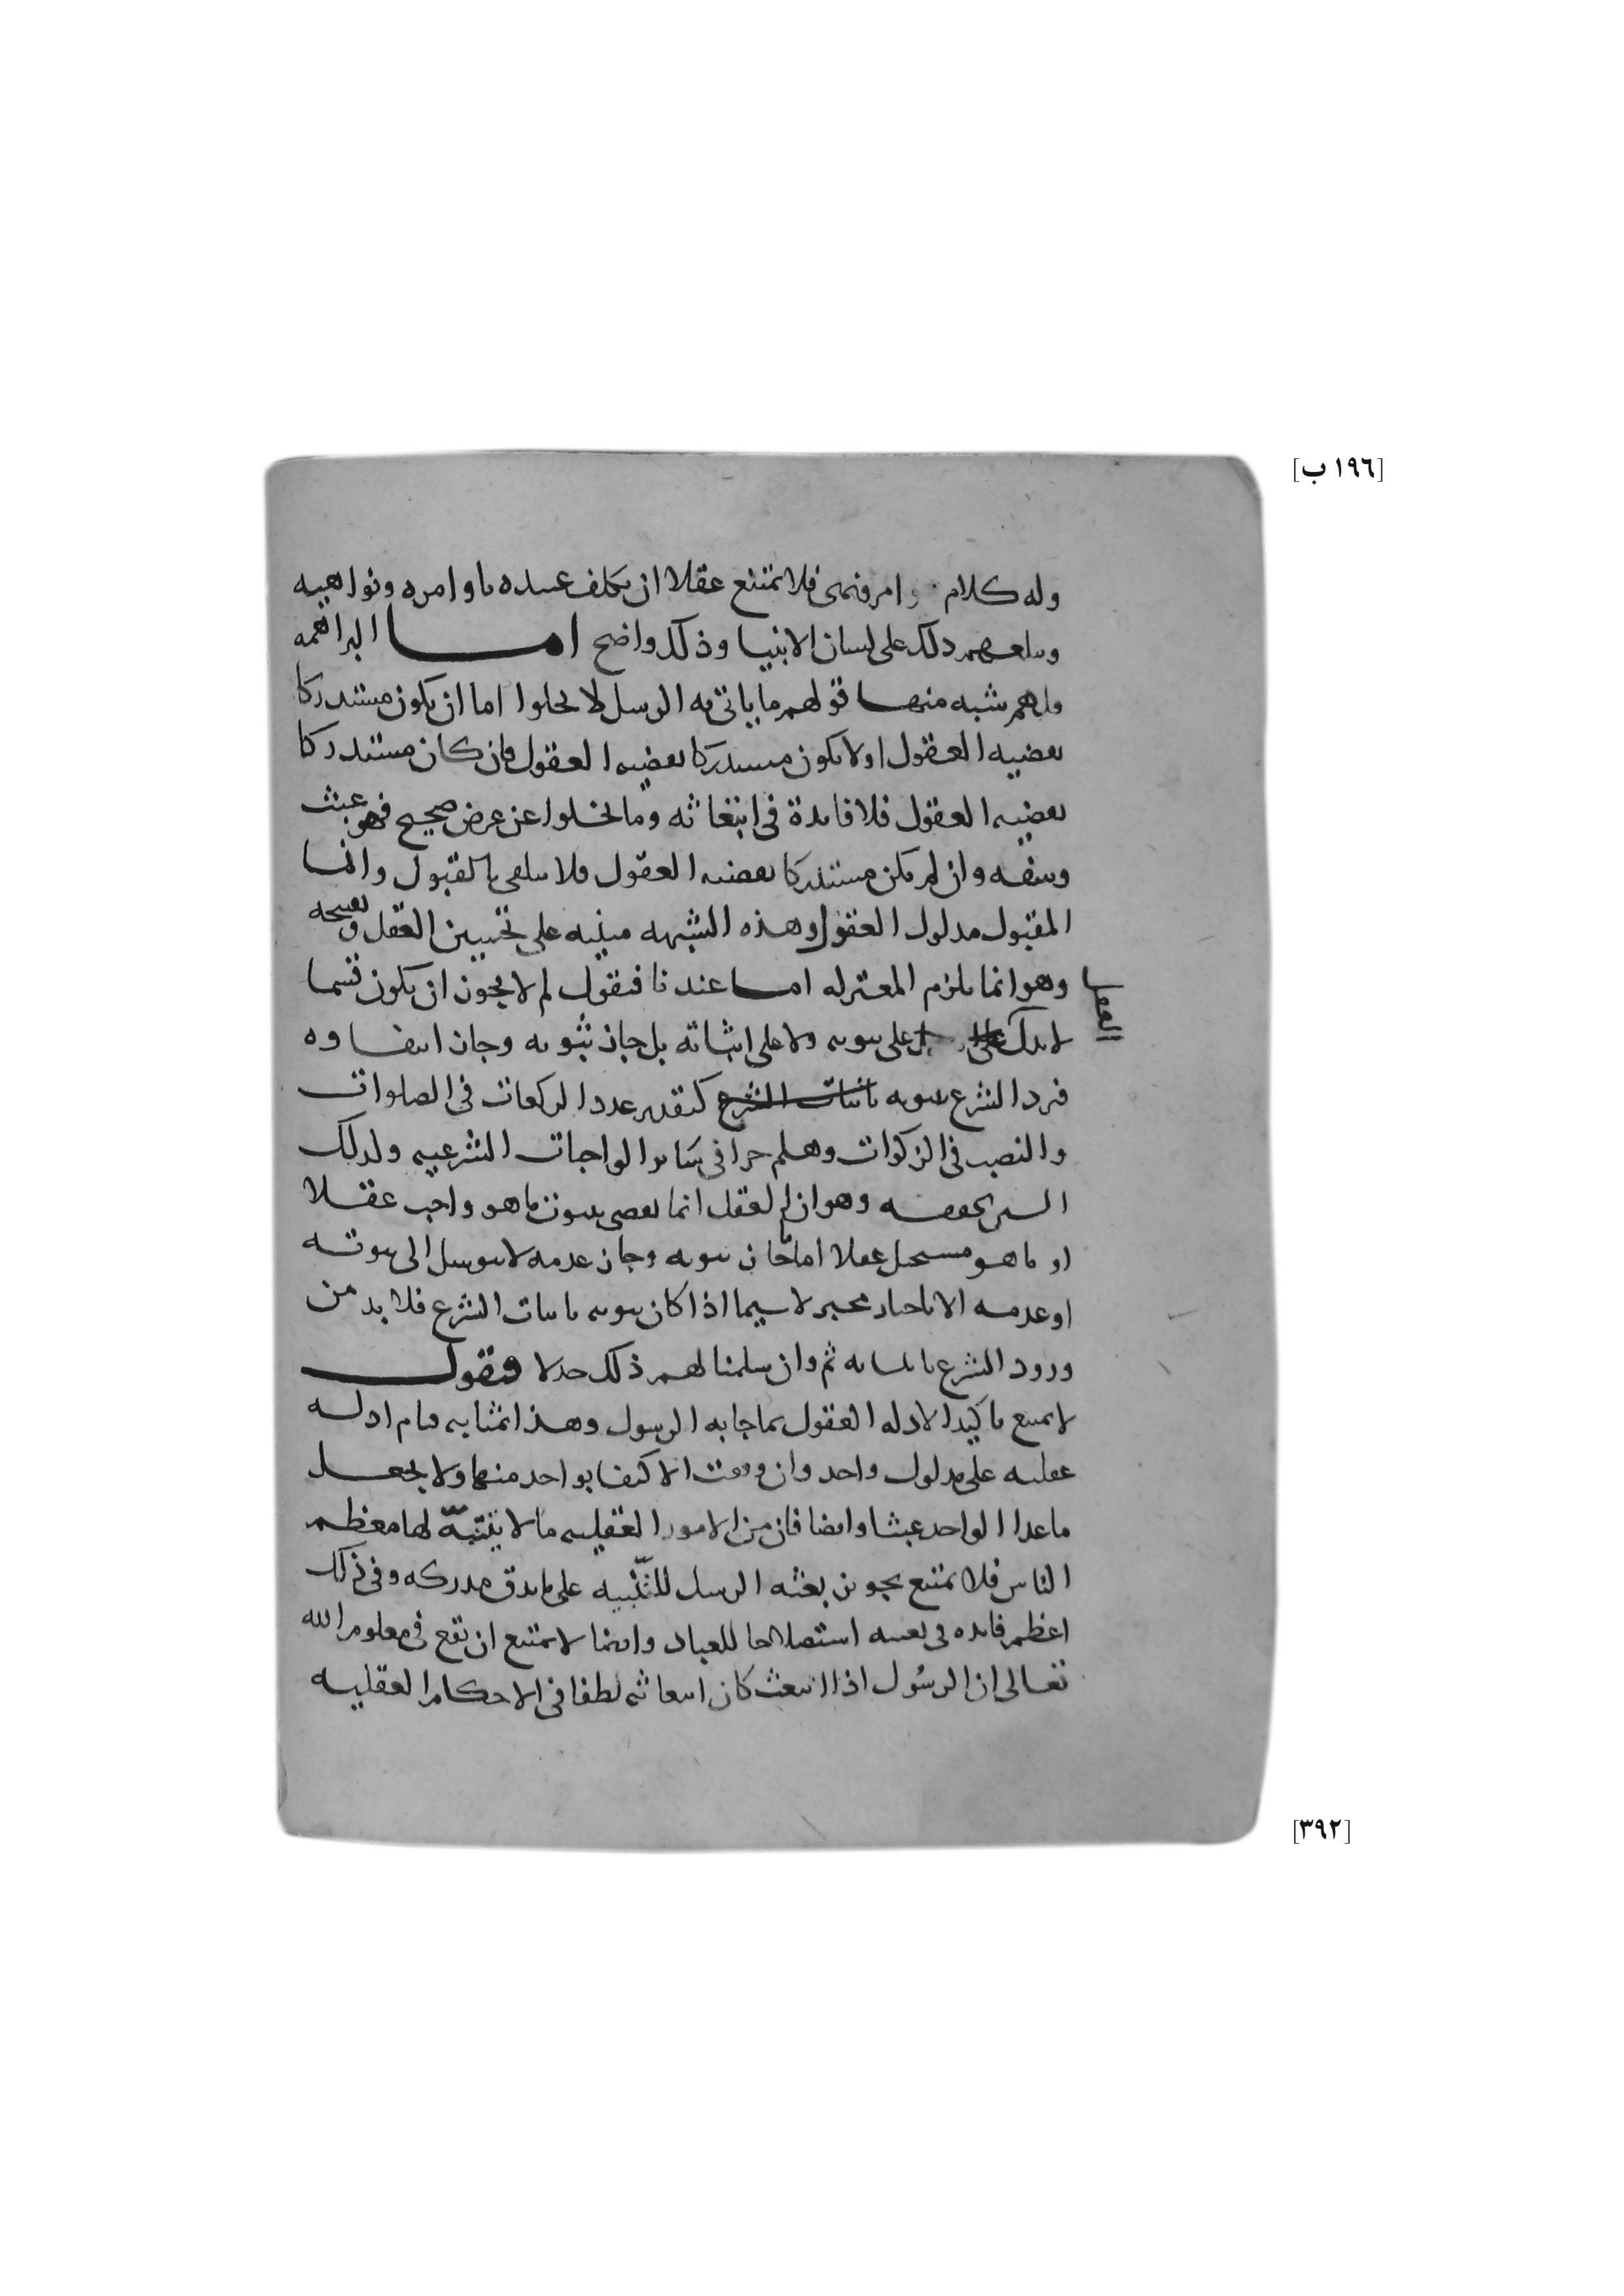 [١٩٦ ب]
وله كلام وامر ونهى فلا يمتنع عقلا ان يكلف عبيده باوامره ونواهيه
وسلعهم ذلك على لسان الانبيا وذلك واضح امـــا البراهمه
ولهم شبه منها قولهم ما ياتى به الرسل لا يخلوا اما ان يكون مستدركا
بعضيه العقول اولا يكون مستدركا بعضيه العقول فان كان مستدركا
بعضيه العقول فلا فايدة فى ابتغاثه وما يخلوا عن غرض صحيح فهو عبث
وسفه وان لم يكن مستدركا بعضيه العقول فلا يتلقى بالقبول وانما
المقبول مدلول العقول وهذه الشبهه مبنيه على تحسين العقل وتقبيحه
وهو انما يلزم المعتزله امـا عندنا فنقول لم لا يجوز ان يكون قسما
العقل
لا يدل على ثبوته ولا على اثباته بل جاز ثبوته وجاز انتفاوه
فرد الشرع بثبوته باثبات الشرع كتقدير عدد الركعات فى الصلوات
والنصب فى الزكوات وهلم جرا فى ساير الواجبات الشرعيه ولذلك
وهو ان العقل انما يقضى بثبوت ما هو واجب عقلا
او ما هو مستحيل عقلا اما ما جاز ثبوته وجاز عدمه لا يتوسل الى ثبوته
او عدمه الا باخبار مخبر لا سيما اذا كان ثبوته باثبات الشرع فلا بد من
ورود الشرع باثباته ثم وان سلمنا لهم ذلك جدلا فنقول
لا يمتنع تاكيدا لادله العقول بما جا به الرسول وهذا بمثابه قيام ادله
عقليه على مدلول واحد وان وقعت الاكتفا بواحد منها ولا يجعل
ما عدا الواحد عبثا وايضا فان من الامور العقليه ما لا يتنبه لها معظم
الناس فلا يمتنع تجويز بعثه الرسل للتنبيه على ما يدق مدركه وفى ذلك
اعظم فايده فى بعثه استصلاحا للعباد وايضا لا يمتنع ان تقع فى معلوم الله
تعالى ان الرسول اذا انبعث كان انبعاثه لطفا فى الاحكام العقليه
[٣٩٢]